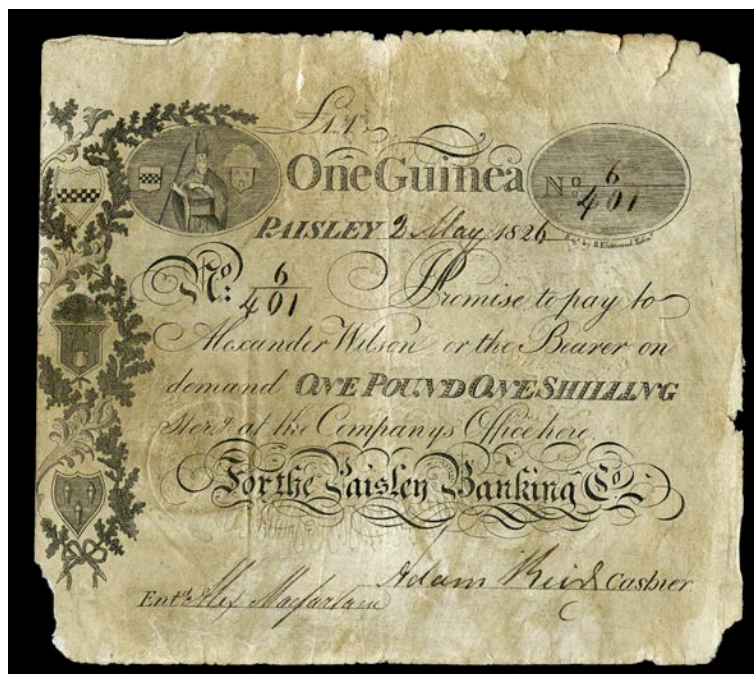 £1,,1,,
One Guinea
No. 6/401
PAISLEY 2 May 1826
No. 6/401 I Promise to pay to
Alexander Wilson or the Bearer on
demand ONE POUND ONE SHILLING
Sterg. at the Companys Office here
For the Paisley Banking Co.
Adam Reid Cashier
Entd. Alex Macfarlane